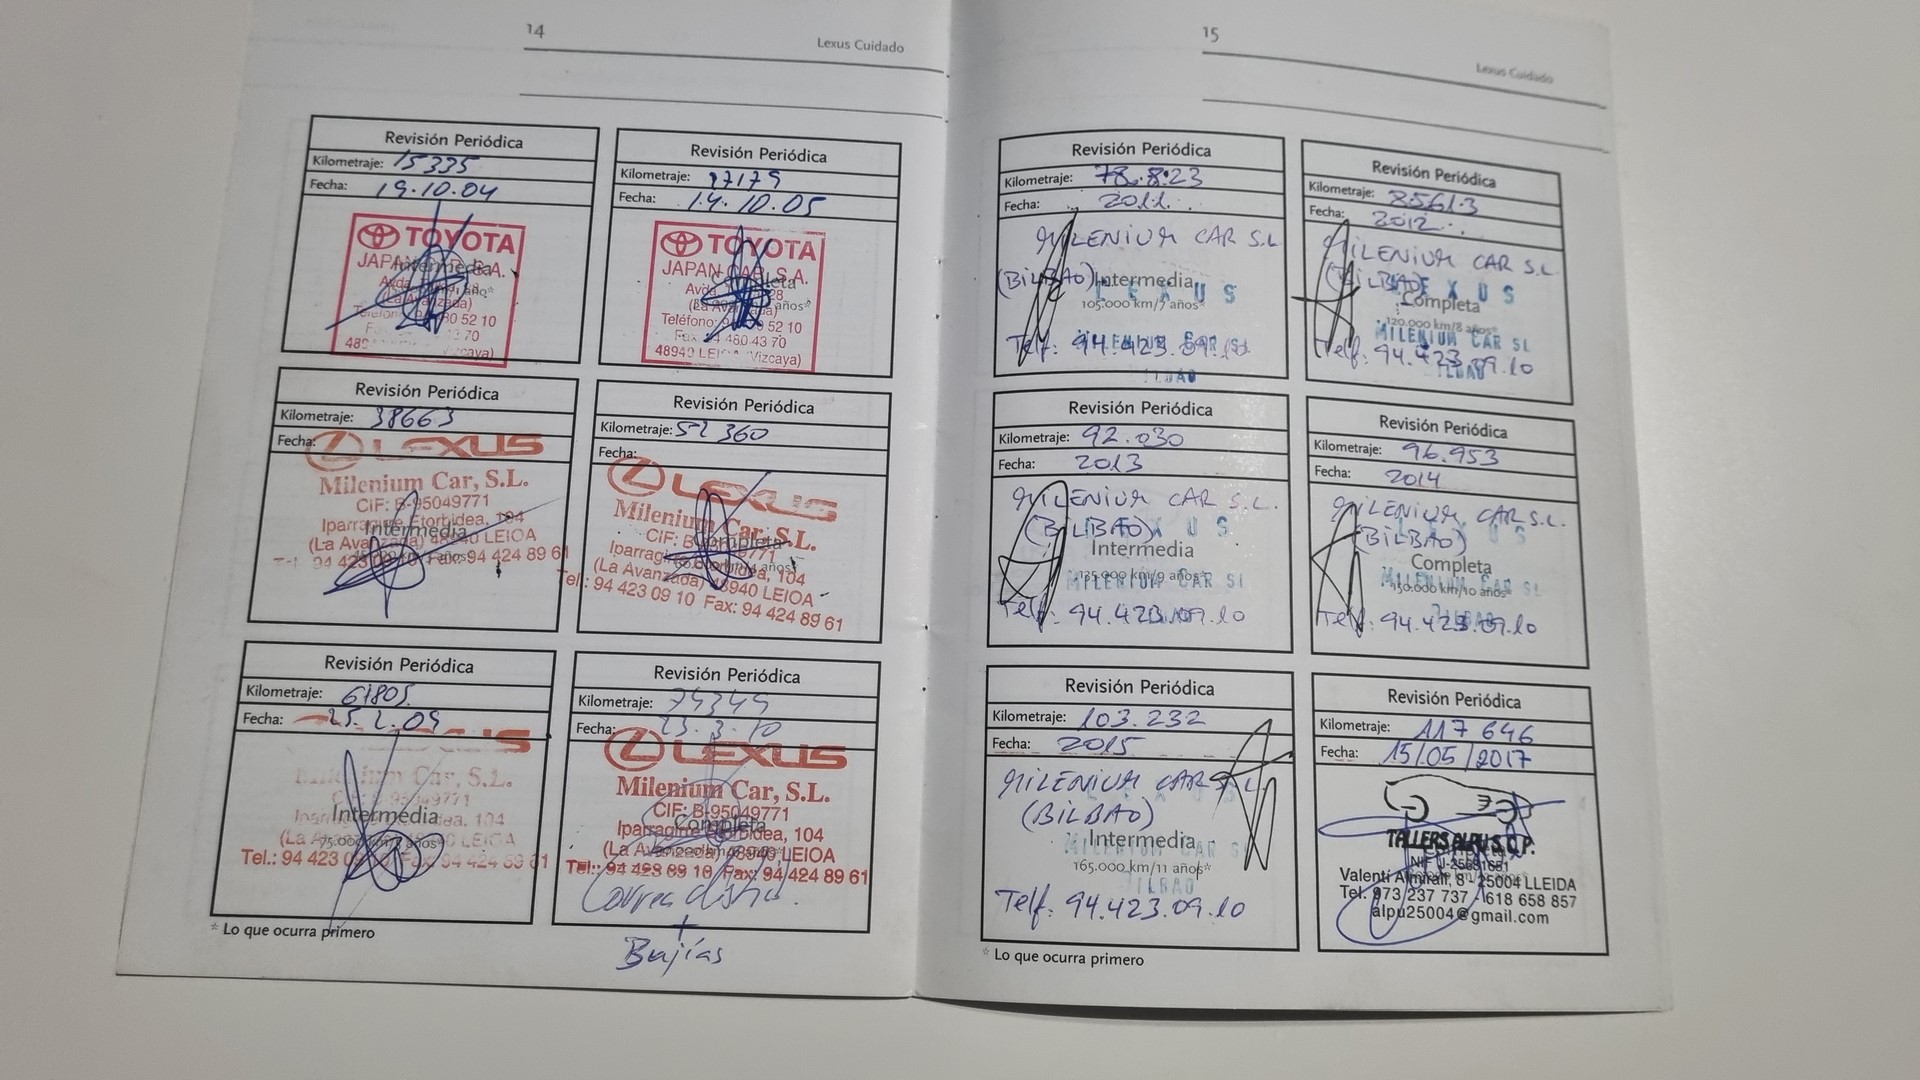 14
Lexus Cuidado
Revisión Periódica
Kilometraje: 15335
Fecha: 19.10.04
TOYOTA
JAPAN CAR, S.A.
Intermedia
año*
(La Avanzada)
80 52 10
48940 LEIOA (Vizcaya)
Revisión Periódica
Kilometraje: 27179
Fecha: 14.10.05
TOYOTA
JAPAN CAR, S.A.
Completa
Avda.
28
(La Avanzada)
años*
Teléfono: 94 480 52 10
Fax: 94 480 43 70
48940 LEIOA (Vizcaya)
Revisión Periódica
Kilometraje: 38663
Fecha:
LEXUS
Milenium Car, S.L.
CIF: B-95049771
Iparragirre Etorbidea, 104
Intermedia
(La Avanzada) 48940 LEIOA
Tel.: 94 423 09 10 Fax: 94 424 89 61
Revisión Periódica
Kilometraje: 52 360
Fecha:
LEXUS
Milenium Car, S.L.
CIF: B-95049771
Completa
Iparragirre Etorbidea, 104
(La Avanzada) 48940 LEIOA
Tel.: 94 423 09 10 Fax: 94 424 89 61
Revisión Periódica
Kilometraje: 61805
Fecha: 25.2.09
Milenium Car, S.L.
CIF: B-95049771
Iparragirre Etorbidea, 104
Intermedia
(La Avanzada) 48940 LEIOA
75.000 km/ años*
Tel.: 94 423 09 10 Fax: 94 424 89 61
Revisión Periódica
Kilometraje: 74349
Fecha: 23.3.10
LEXUS
Milenium Car, S.L.
CIF: B-95049771
Iparragirre Etorbidea, 104
Completa
(La Avanzada) 48940 LEIOA
Tel.: 94 423 09 10 Fax: 94 424 89 61
Correa
+
Bujías
* Lo que ocurra primero
15
Lexus Cuidado
Revisión Periódica
Kilometraje: 78.823
Fecha: 2011
MILENIUM CAR S.L
(BILBAO)
Intermedia
LEXUS
105.000 km/7 años*
MILENIUM CAR SL
Telf: 94.423.09.10
BILBAO
Revisión Periódica
Kilometraje: 85613
Fecha: 2012
MILENIUM CAR S.L
(BILBAO)
LEXUS
Completa
120.000 km/8 años*
MILENIUM CAR SL
Telf: 94.423.09.10
BILBAO
Revisión Periódica
Kilometraje: 92.030
Fecha: 2013
MILENIUM CAR S.L.
(BILBAO)
LEXUS
Intermedia
135.000 km/9 años*
MILENIUM CAR SL
Telf: 94.423.09.10
Revisión Periódica
Kilometraje: 96.953
Fecha: 2014
MILENIUM CAR S.L.
(BILBAO)
LEXUS
Completa
150.000 km/10 años*
MILENIUM CAR SL
Telf: 94.423.09.10
BILBAO
Revisión Periódica
Kilometraje: 103.232
Fecha: 2015
MILENIUM CAR S.L.
(BILBAO)
LEXUS
Intermedia
MILENIUM CAR S
165.000 km/11 años*
BILBAO
Telf: 94.423.09.10
Revisión Periódica
Kilometraje: 117 646
Fecha: 15/05/2017
TALLERS ALPU S.C.P.
Valentí Almirall, 8 - 25004 LLEIDA
Tel. 973 237 737 - 618 658 857
alpu25004@gmail.com
* Lo que ocurra primero